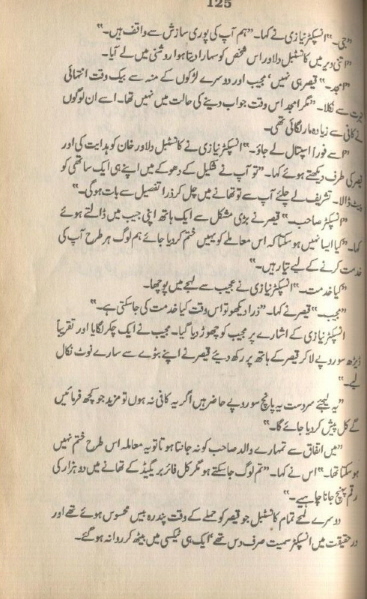 125
"جی۔" انسپکٹر نیازی نے کہا۔ "ہم آپ کی پوری سازش سے واقف ہیں۔"
اتنی دیر میں کانسٹیبل دلاور اس شخص کو سہارا دیتا ہوا روشنی میں لے آیا۔
"امجد۔" قیصر ہی نہیں، مجیب اور دوسرے لڑکوں کے منہ سے بیک وقت انتہائی
حیرت سے نکلا۔ "مگر امجد اس وقت جواب دینے کی حالت میں نہیں تھا۔ اسے ان لوگوں
نے کافی سے زیادہ مار لگائی تھی۔
"اسے فوراً اسپتال لے جاؤ۔" انسپکٹر نیازی نے کانسٹیبل دلاور خان کو ہدایت کی اور
قیصر کی طرف دیکھتے ہوئے کہا۔ "تو آپ نے شکیل کے دھوکے میں اپنے ہی ایک ساتھی کو
پیٹ ڈالا۔ تشریف لے چلئے آپ سے تو تھانے میں چل کر ذرا تفصیل سے بات ہو گی۔"
"انسپکٹر صاحب۔" قیصر نے بڑی مشکل سے ایک ہاتھ اپنی جیب میں ڈالتے ہوئے
کہا۔ "کیا ایسا نہیں ہو سکتا کہ اس معاملے کو یہیں ختم کر دیا جائے ہم لوگ ہر طرح آپ کی
خدمت کرنے کے لیے تیار ہیں۔"
"کیا خدمت۔" انسپکٹر نیازی نے عجیب سے لہجے میں پوچھا۔
"مجیب۔" قیصر نے کہا۔ "ذرا دیکھو تو اس وقت کیا خدمت کی جا سکتی ہے۔"
انسپکٹر نیازی کے اشارے پر مجیب کو چھوڑ دیا گیا۔ مجیب نے ایک چکر لگایا اور تقریباً
ڈیڑھ سو روپے لا کر قیصر کے ہاتھ پر رکھ دیئے قیصر نے اپنے بٹوے سے سارے نوٹ نکال
لیے۔
"یہ لیجئے سردست یہ پانچ سو روپے حاضر ہیں اگر یہ کافی نہ ہوں تو مزید جو کچھ فرمائیں
گے کل پیش کر دیا جائے گا۔"
"میں اتفاق سے تمہارے والد صاحب کو نہ جانتا ہوتا تو یہ معاملہ اس طرح ختم نہیں
ہو سکتا تھا۔" اس نے کہا۔ "تم لوگ جا سکتے ہو مگر کل فائر بریگیڈ کے تھانے میں دو ہزار کی
رقم پہنچ جانا چاہیے۔"
دوسرے لمحے تمام کانسٹیبل جو قیصر کو حملے کے وقت پندرہ بیس محسوس ہوئے تھے اور
در حقیقت میں انسپکٹر سمیت صرف دس تھے، ایک ہی ٹیکسی میں بیٹھ کر روانہ ہو گئے۔